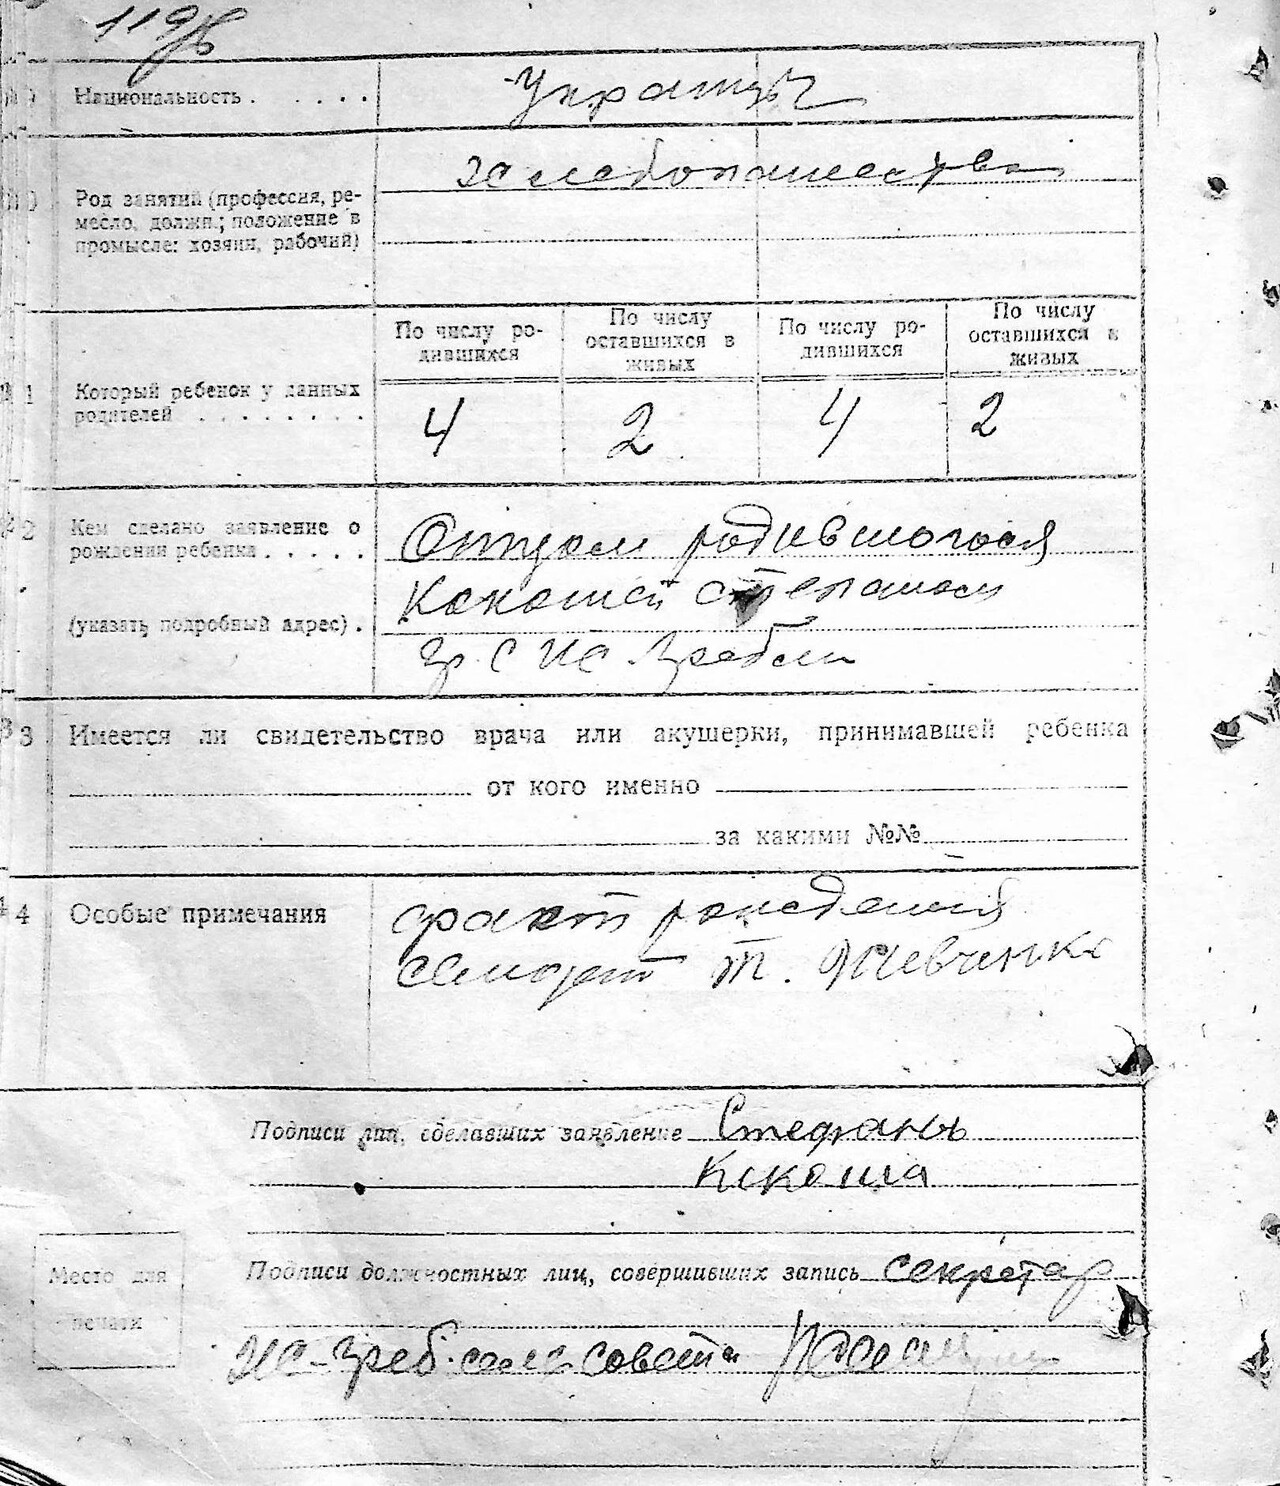 119
Национальность . . . . . . Украинцы
хлебопашество
Род занятий (профессия, ре-
месло, должн.; положение в
промысле: хозяин, рабочий)
По числу ро-
дившихся
По числу
оставшихся в
живых
По числу ро-
дившихся
По числу
оставшихся в
живых
1 Который ребенок у данных
родителей . . . . . . . .
4 2 4 2
2 Кем сделано заявление о
рождении ребенка . . . . .
Отцом родившегося
Кокошей Степаном
(указать подробный адрес) .
3 Имеется ли свидетельство врача или акушерки, принимавшей ребенка
от кого именно
за какими №№
4 Особые примечания
факт рождения
Т. Шевченко
Подписи лиц, сделавших заявление Стефанъ
Кокоша
Место для
печати
Подписи должностных лиц, совершивших запись секретар
совета